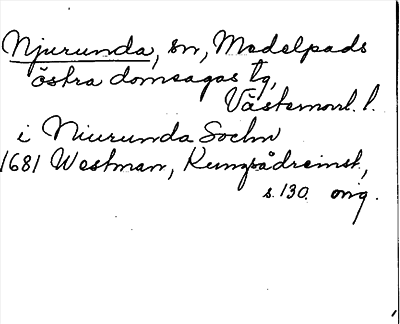 Njurunda, sn, Medelpads
östra domsagas tg,
Västernorrl. l.
i Niurunda Sochn
1681 Westman, Kungsådreinst,
s. 130. orig.